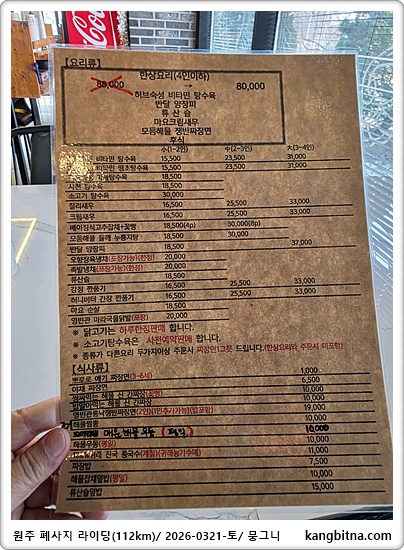 【요리류】
한상요리(4인이하)
88,000 → 80,000
허브숙성 비타민 탕수육
반달 양장피
류 산 슬
마요크림새우
모듬해물 쟁반짜장면
후식
小(1-2인) 中(2-3인) 大(3-4인)
비타민 탕수육 15,500 23,500 31,000
15,500 23,500 31,000
탕수육 18,500
사천 탕수육 18,500
소고기 탕수육 30,000
칠리새우 16,500 25,500 33,000
크림새우 16,500 25,500 33,000
베이징식고추잡채+꽃빵 18,500(4p) 30,000(8p)
모듬해물 들깨 누룽지탕 18,500 30,000
반달 양장피 18,500 37,000
오향장육냉채(포장가능)(한정) 20,000
족발냉채(포장가능)(한정) 20,000
류산슬 18,500
깐풍기 16,500 25,500 33,000
허니버터 간장 깐풍기 16,500 25,500 33,000
마요 순살 18,500
영빈관 마라국물닭발(포장) 20,000
※ 닭고기는 하루한정판매 합니다.
※ 소고기탕수육은 사전예약판매 합니다.
※ 종류가 다른요리 두가지이상 주문시 짜장면1그릇 드립니다.(한상요리와 주문시 미포함)
【식사류】
뽀로로 애기 짜장면(3-6세) 1,000
야채 짜장면 6,500
해물 신 간짜장(곱빵) 10,000
해물 신 간짜장 10,000
영빈관동낙쟁반짜장면(2인)(1인추가가능)(밥포함) 19,000
해물짬뽕 10,000
매운 해물 우동 (평일) 10,000
해물우동(평일) 10,000
진국 콩국수(계절)(귀래농가수매) 11,000
짜장밥 7,500
해물잡채덮밥(평일) 10,000
류산슬덮밥 15,000
Coca
원주 폐사지 라이딩(112km)/ 2026-0321-토/ 뭉그니 kangbitna.com